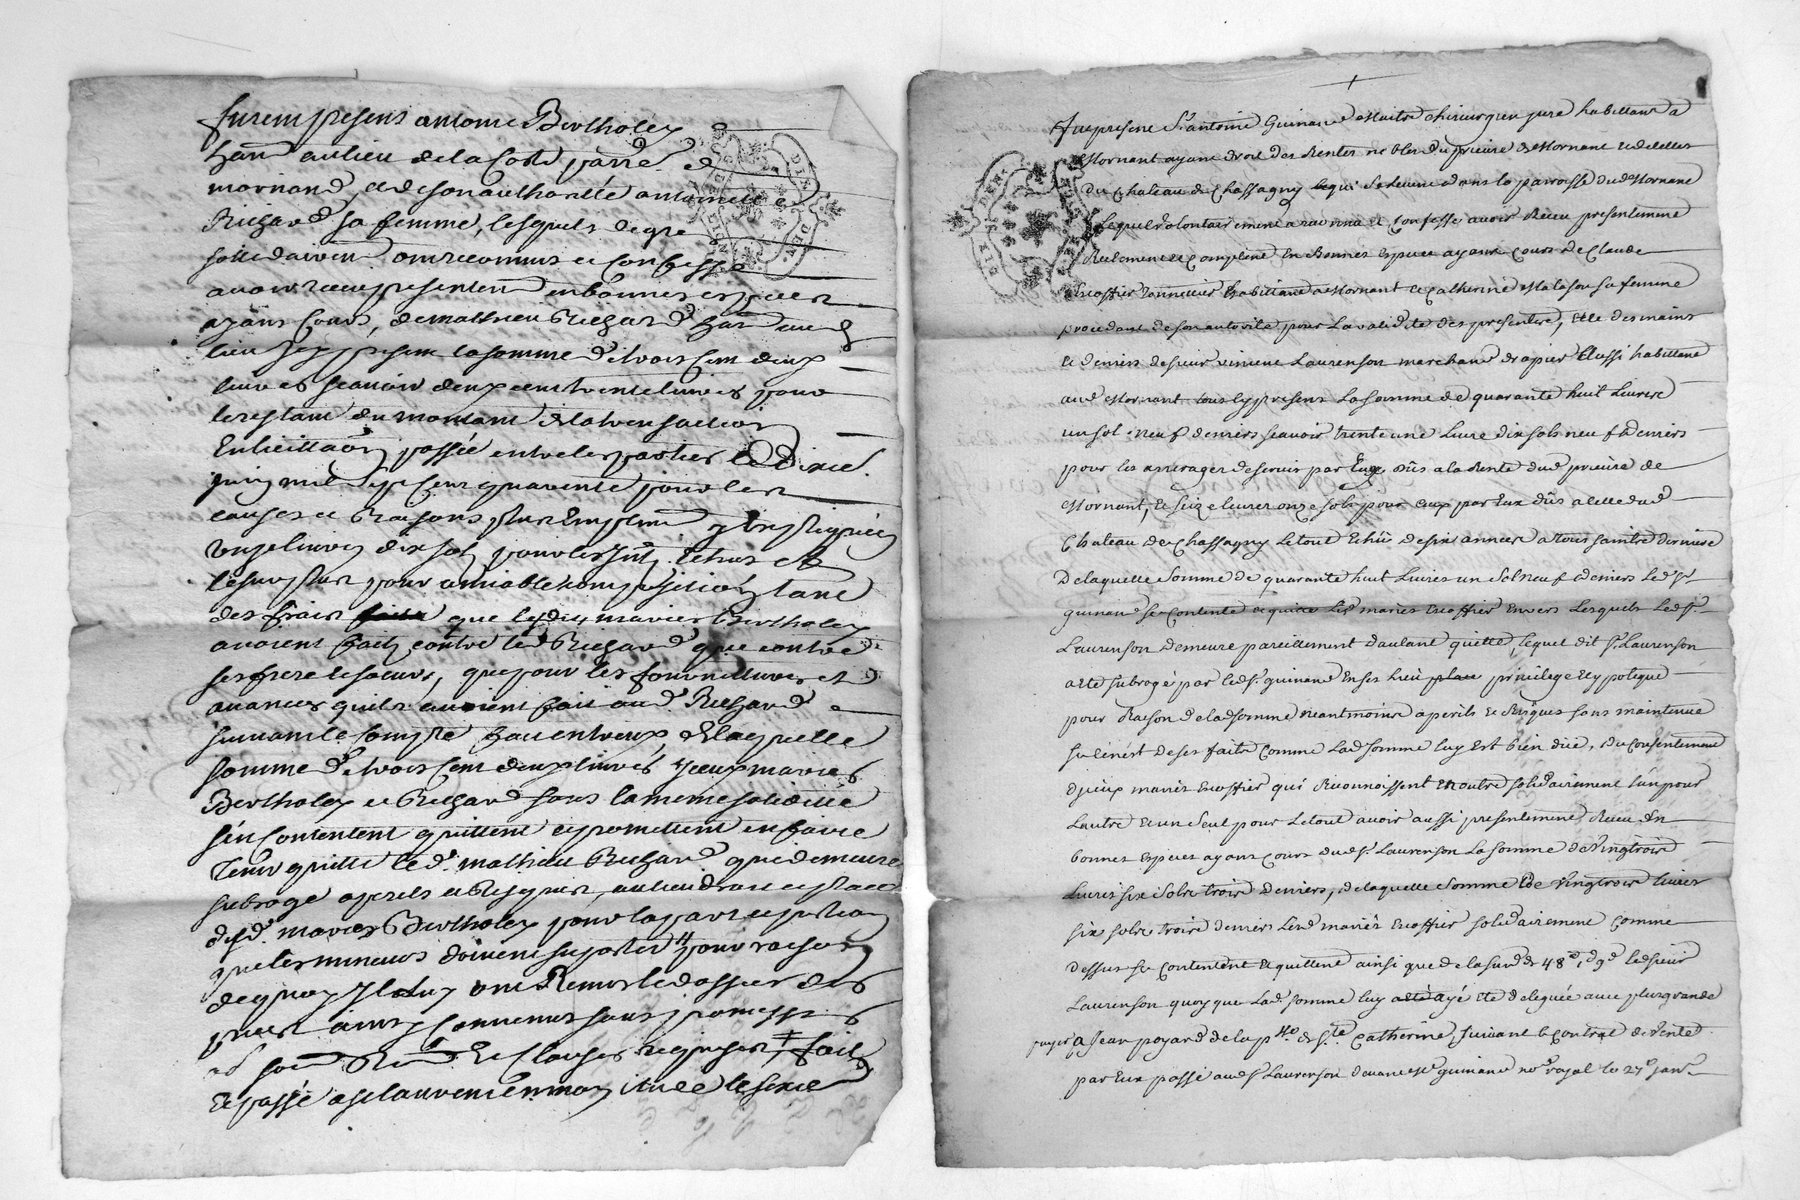 furent presens antoine Bertholey
au lieu de la Coste parr.e de
mornand, et de son authorité antoinette
Richard sa femme, lesquels de gre
sollidairem.t ont reconnus et confesse
avoir receu presentem.t en bonnes especes
ayans Cours, de mathieu Richard
lieu Icy present la somme de trois cent deux
livres scavoir deux cent trente livres pour
le restant du montant de la transaction
passée entre les parties le Dixie.
juin mil sept cent quarente pour les
causes et Raisons y expliquées
onze livres dix sols pour les
le surplus pour amiable composition tant
des frais que lesdits maries Bertholey
avoient faits contre led. Richard que contre
ses frere et soeurs, que pour les fournitures et
avances quils avoient fait aud. Richard
suivant le Compte fait entreux, de laquelle
somme de trois cent deux livres, Iceux maries
Bertholey et Richard sous la meme solidité
s'en contentent quittent et promettent en faire
tenir quitte led. mathieu Richard qui demeure
subrogé a perils et Risques, au lieu droit et place
desd. maries Bertholey pour la part et portion
que les mineurs doivent suporter pour raison
de quoy Ils luy ont Remis le dossier des
ainsy convenus sous promesses
et Clauses requises, fait
et passé a st laurent en mon etude le sixie

fut present Sr. antoine Guinand Maitre chirurgien juré habittant a
Mornant ayant droit des Rentes nobles du prieuré de Mornant et de celles
Du Chateau de Chassagny qui se leve dans la parroisse dud. Mornant
Lequel volontairement a reconnu et Confessé avoir Receu presentement
Reelement et Comptant En Bonnes Especes ayant Cours de Claude
Escoffier tonnellier habittant a Mornant et Catherine Malason sa femme
procedant de son autorité pour La validité des presentes, Et de des mains
et deniers de sieur vincent Laurenson marchand drapier Aussi habittant
aud. Mornant tous Cy presens La somme de quarante huit Livres
un sol neuf deniers scavoir trente une Livre dix sols neuf deniers
pour les arrerages de servis par Eux dûs a la Rente dud. prieuré de
Mornant, et seize livres onze sols pour ceux par Eux dûs a celle dud.
Chateau de Chassagny Le tout Echû de six années a toussaintes derniere
De laquelle Somme de quarante huit Livres un Sol Neuf deniers Led. Sr.
guinand se Contente et quitte Lesd. mariés Escoffier Envers Lesquels Led. Sr.
Laurenson demeure pareillement d'autant quitte, lequel dit Sr. Laurenson
a Eté subrogé par led. Sr. guinand En ses Lieu place privilege et ypoteque
pour Raison de lad. Somme neantmoins a perils et Risques sans maintenue
si ce n'est de ses faits Comme Lad. somme luy Est bien düe, du Consentement
d'yceux mariés Escoffier qui Reconnoissent En outre solidairement l'un pour
Lautre Et un Seul pour Le tout avoir aussi presentement Receu En
bonnes Especes ayant Cours dud. Sr. Laurenson La somme de Vingtrois
Livres six Sols trois Deniers, de laquelle Somme de Vingtrois Livres
six sols trois deniers Lesd. mariés Escoffier solidairement Comme
dessus se Contentent Et quittent ainsi que de la susd. de 48.# 1.s 9.d led. sieur
Laurenson quoyque Lad. Somme luy aye Eté deleguée avec plus grande
payer a Jean poyard de la p.sse de Ste. Catherine, suivant le Contrat de vente
par Eux passé aud. Sr. Laurenson devant Me. guinand nore. royal le 27e. janr.